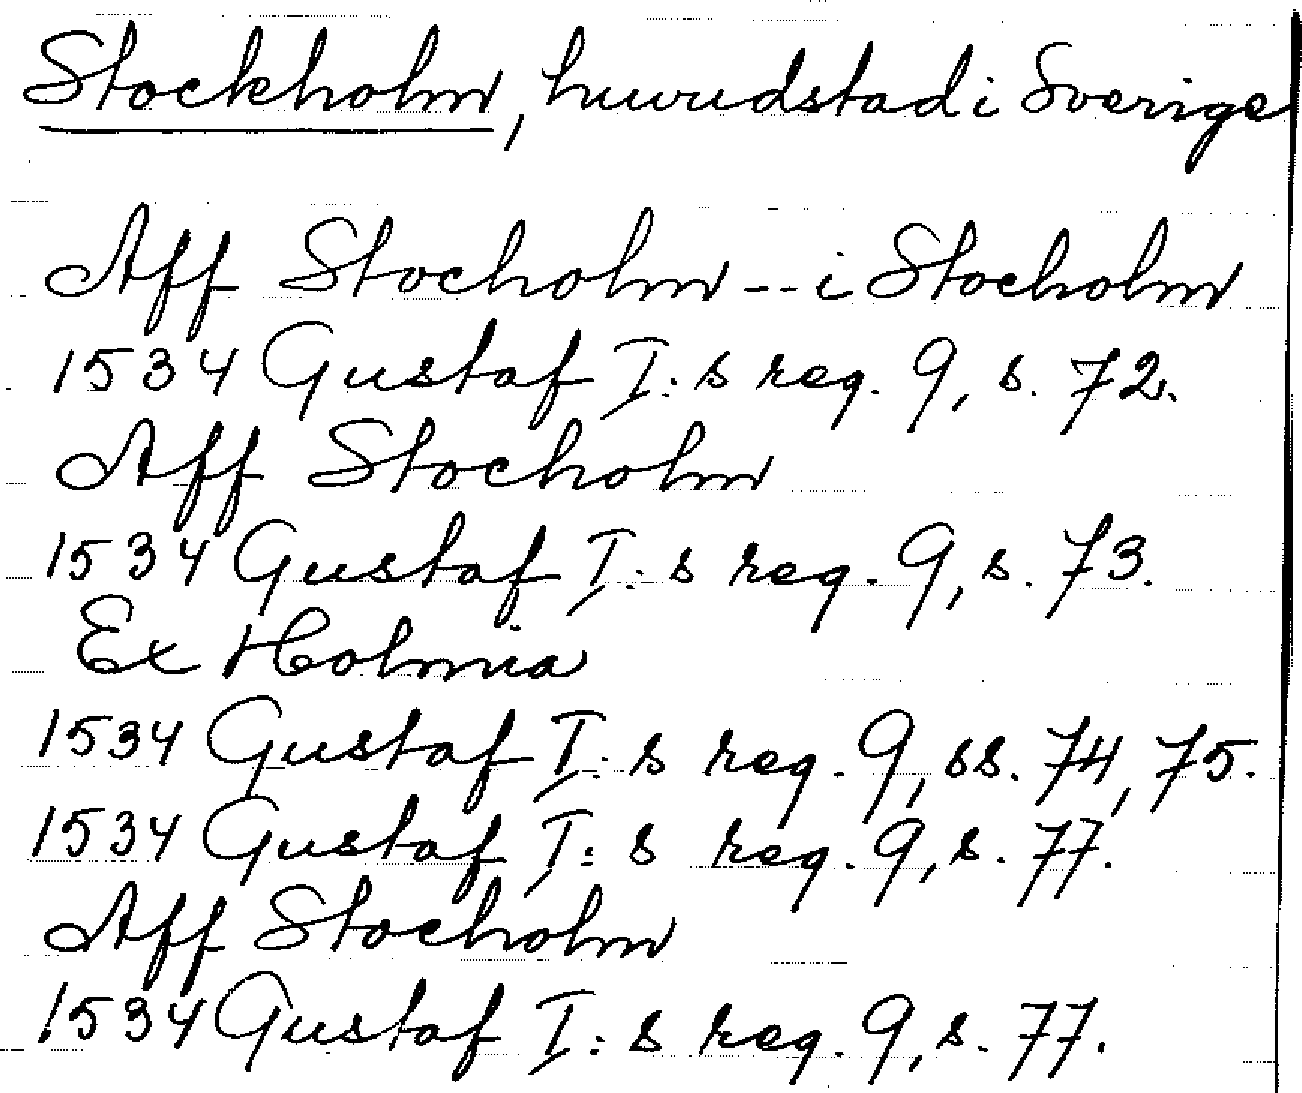 Stockholm, huvudstad i Sverige
Aff Stocholm -- i Stocholm
1534 Gustaf I:s reg. 9, s. 72.
Aff Stocholm
1534 Gustaf I:s reg. 9, s. 73.
Ex Holmia
1534 Gustaf I:s reg. 9, ss. 74, 75.
1534 Gustaf I:s reg. 9, s. 77.
Aff Stocholm
1534 Gustaf I:s reg. 9, s. 77.